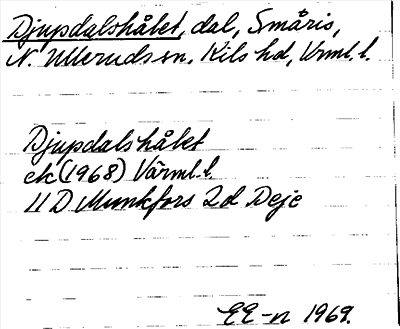 Djupdalshålet, dal, Småris,
N. Ulleruds sn. Kils hd, Vrml. l.
Djupdalshålet
ek (1968) Värml. l.
11 D Munkfors 2d Deje
EE-n 1969.